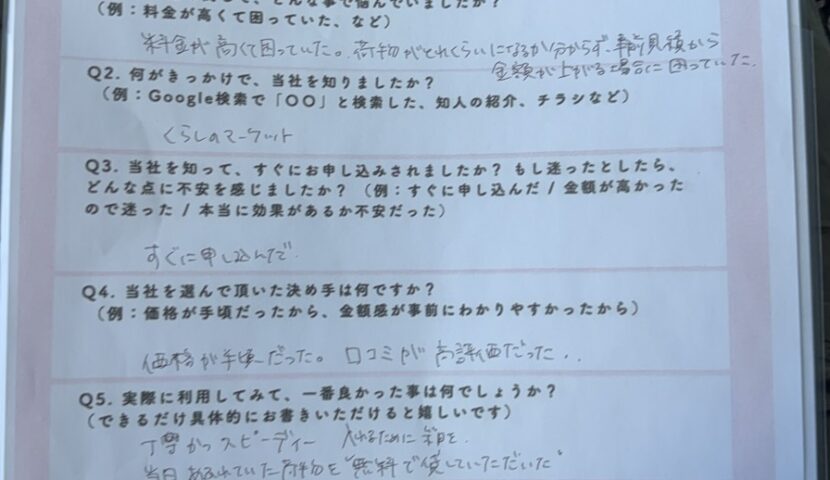 どんな事で悩んでいましたか？
（例：料金が高くて困っていた、など）
料金が高くて困っていた。荷物がどれくらいになるか分からず、事前見積から
金額が上がる場合に困っていた。
Q2. 何がきっかけで、当社を知りましたか？
（例：Google検索で「〇〇」と検索した、知人の紹介、チラシなど）
くらしのマーケット
Q3. 当社を知って、すぐにお申し込みされましたか？ もし迷ったとしたら、
どんな点に不安を感じましたか？（例：すぐに申し込んだ / 金額が高かった
ので迷った / 本当に効果があるか不安だった）
すぐに申し込んだ。
Q4. 当社を選んで頂いた決め手は何ですか？
（例：価格が手頃だったから、金額感が事前にわかりやすかったから）
価格が手頃だった。口コミが高評価だった..
Q5. 実際に利用してみて、一番良かった事は何でしょうか？
（できるだけ具体的にお書きいただけると嬉しいです）
丁寧かつスピーディー 入れるために箱を.
当日あふれていた荷物を"無料で貸していただいた"